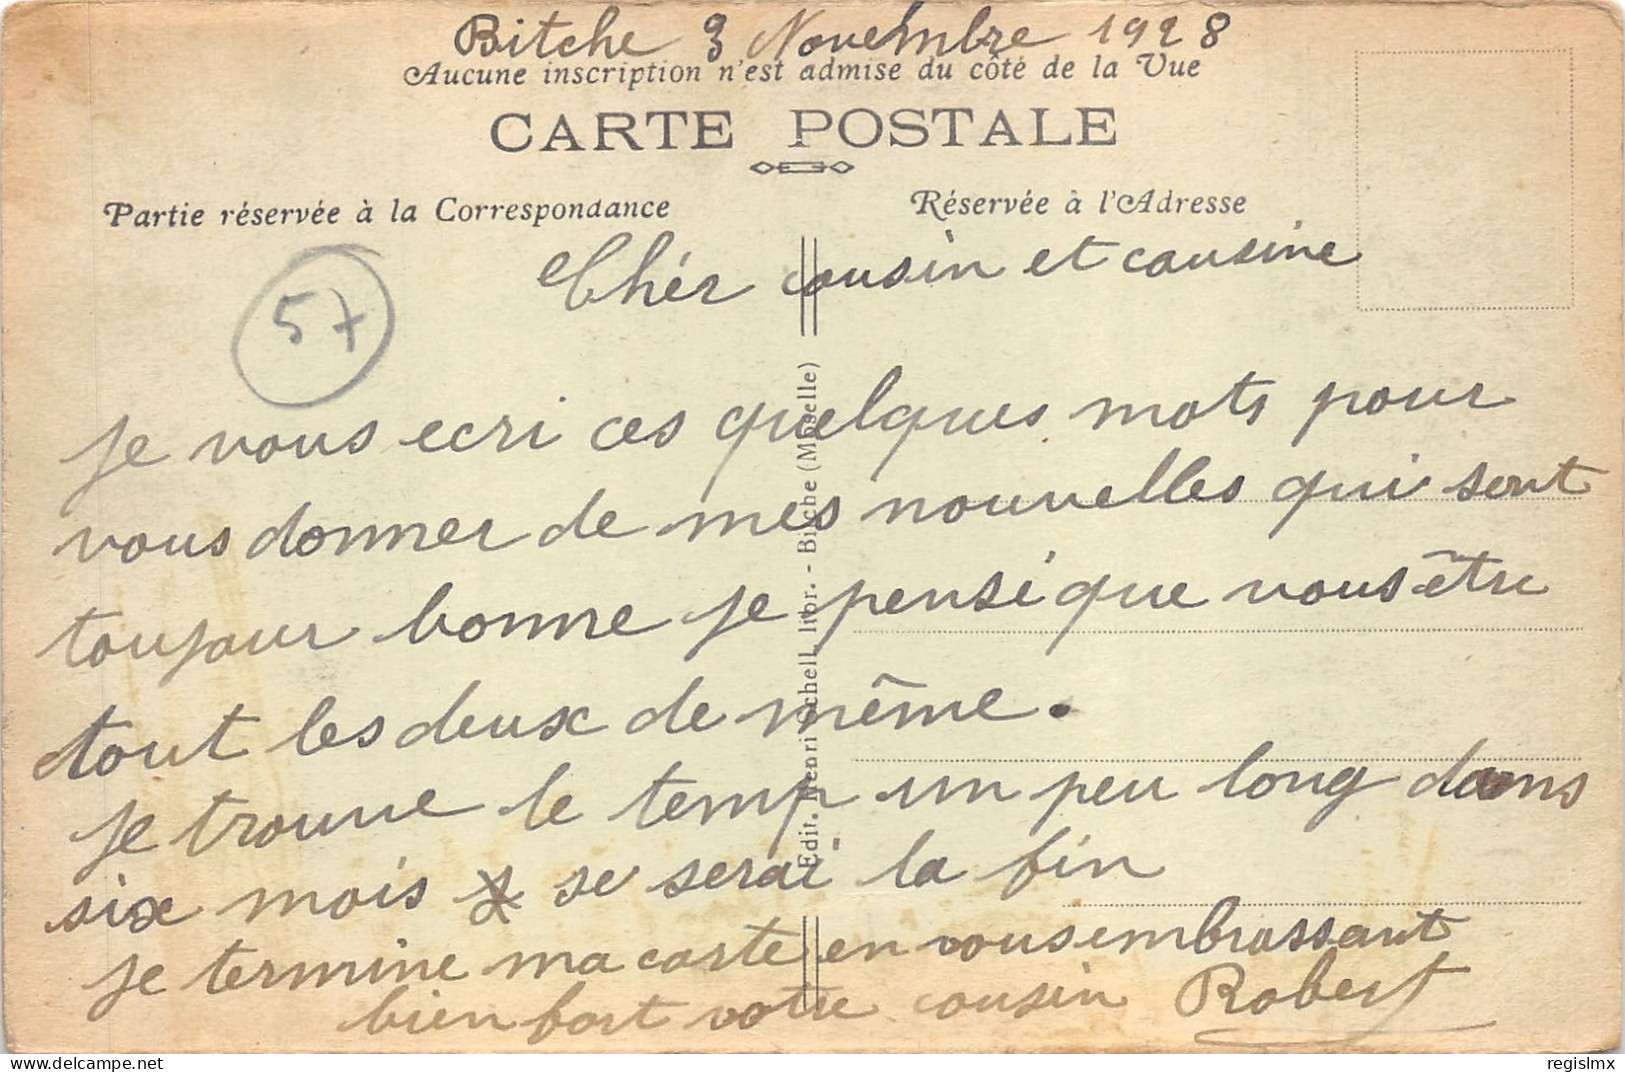 Bitche 3 Novembre 1928
Aucune inscription n'est admise du côté de la Vue
CARTE POSTALE
Partie réservée à la Correspondance
Réservée à l'Adresse
57
Chér cousin et cousine
je vous ecri ces quelques mots pour
vous donner de mes nouvelles qui sont
toujour bonne je pensé que vous être
tout les deux de même.
je trouve le temp un peu long dans
six mois se serai la fin
je termine ma carte en vous embrassant
bien fort votre cousin Robert
Edit. Henri Schell, libr. - Bitche (Moselle)
delcampe.net
regislmx